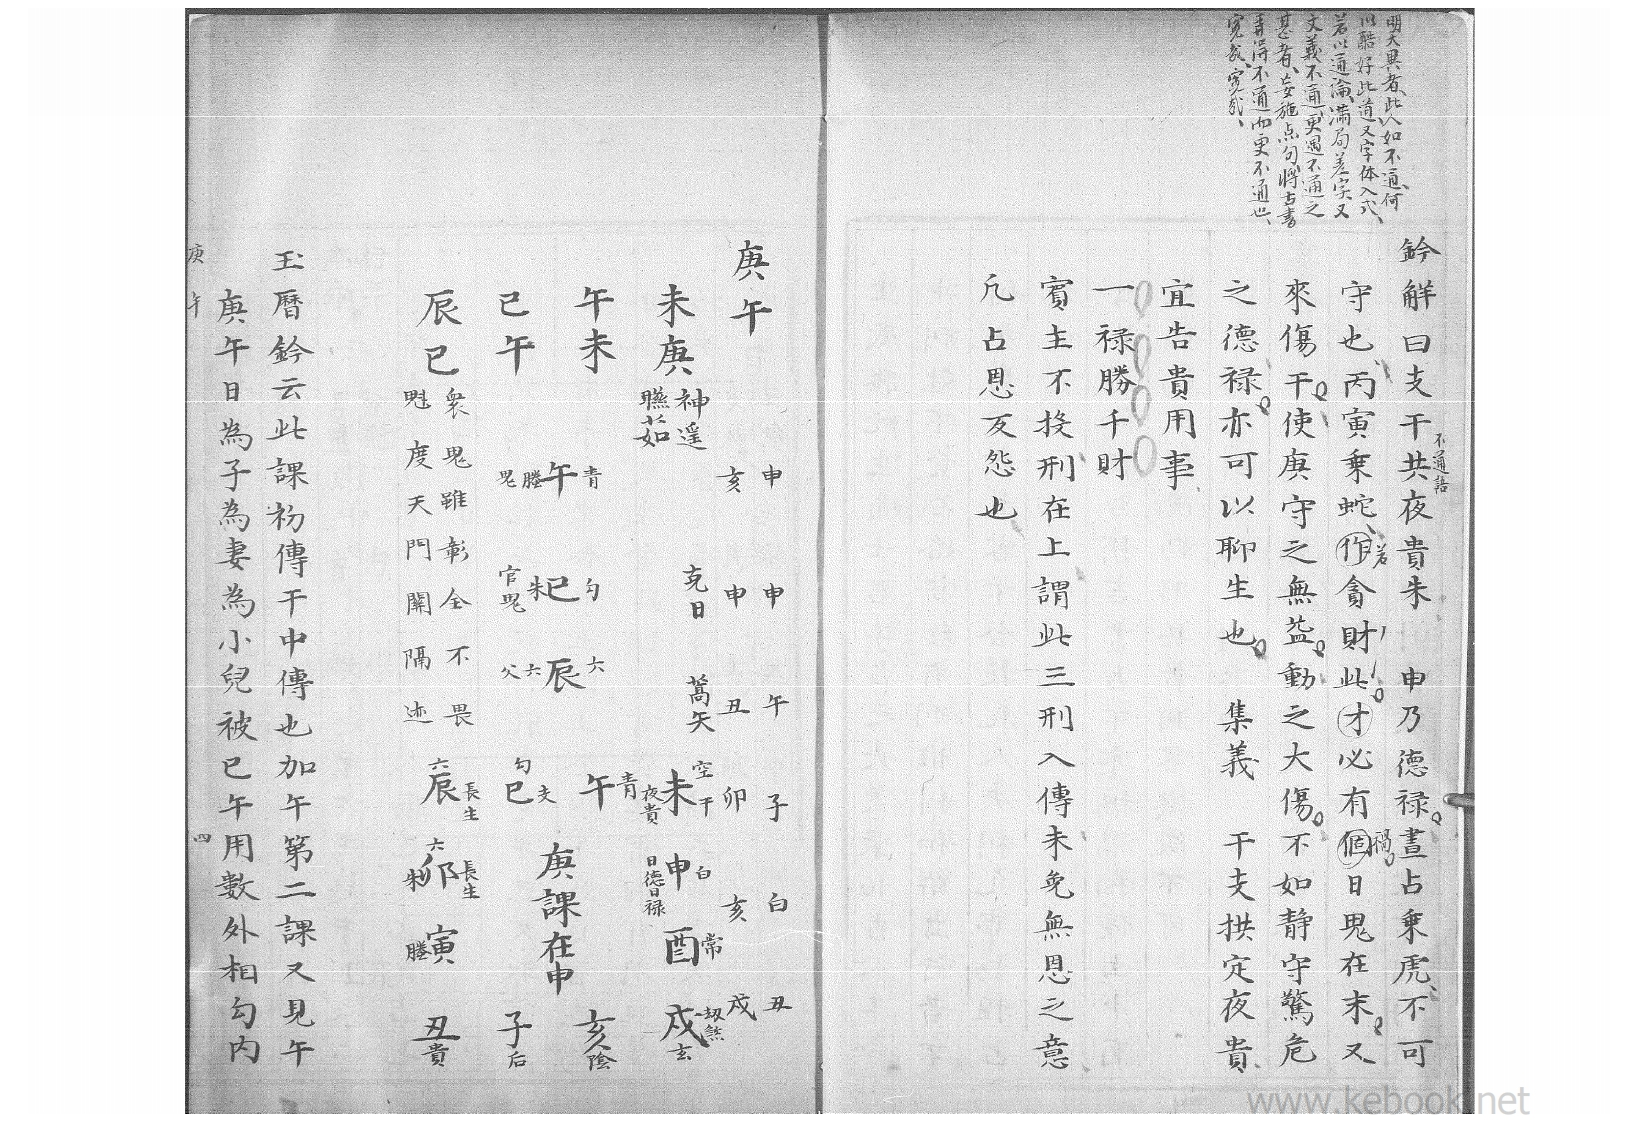 明大異者、此人如不通、何
以酷好此道又字体入式、
若以通論、滿局差字又
文義不通、更遇不通之
甚者、妄施点句、將古書
弄得不通而更不通也、
寃哉、寃哉、
鈐解曰支干共夜貴朱 申乃德禄晝占乗虎不可
不通語
守也丙寅乗蛇作貪財此才必有個日鬼在末又
若
禍
來傷干使庚守之無益動之大傷不如静守驚危
之德禄亦可以聊生也 集義 干支拱定夜貴
宜告貴用事
一禄勝千財
賓主不投刑在上謂此三刑入傳未免無恩之意
凡占恩反怨也
庚午
申 申 午 子 白 丑
亥 申 丑 卯 亥 戍
未庚 神遥 克日 蒿矢 未 空 干 夜貴 申 白 日德日禄 酉 常 戍 刼煞 玄
瞧茹
午未 青 午 螣 鬼 勾 巳 朱 官鬼 六 辰 六 父
午 青 亥 陰
巳午 勾 巳 支 庚課在申 子 后
辰巳 六 辰 長生 六 卯 長生 朱 寅 螣 丑 貴
衆鬼雖彰全不畏
魁度天門關隔迹
玉暦鈐云此課初傳干中傳也加午第二課又見午
庚午日為子為妻為小兒被巳午用數外相勾内
庚午
四
www.kebook.net